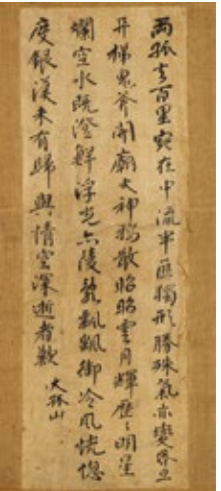 兩孤去百里宛在中流半匪獨形勝殊氣亦變昏旦
丹梯鬼斧開廟火神鴉散昭昭雲月輝歷々明星
爛空水既澄鮮浮光亦陵亂飄飄御冷風恍惚
度銀漢未有歸與情空深逝者歎
大孤山